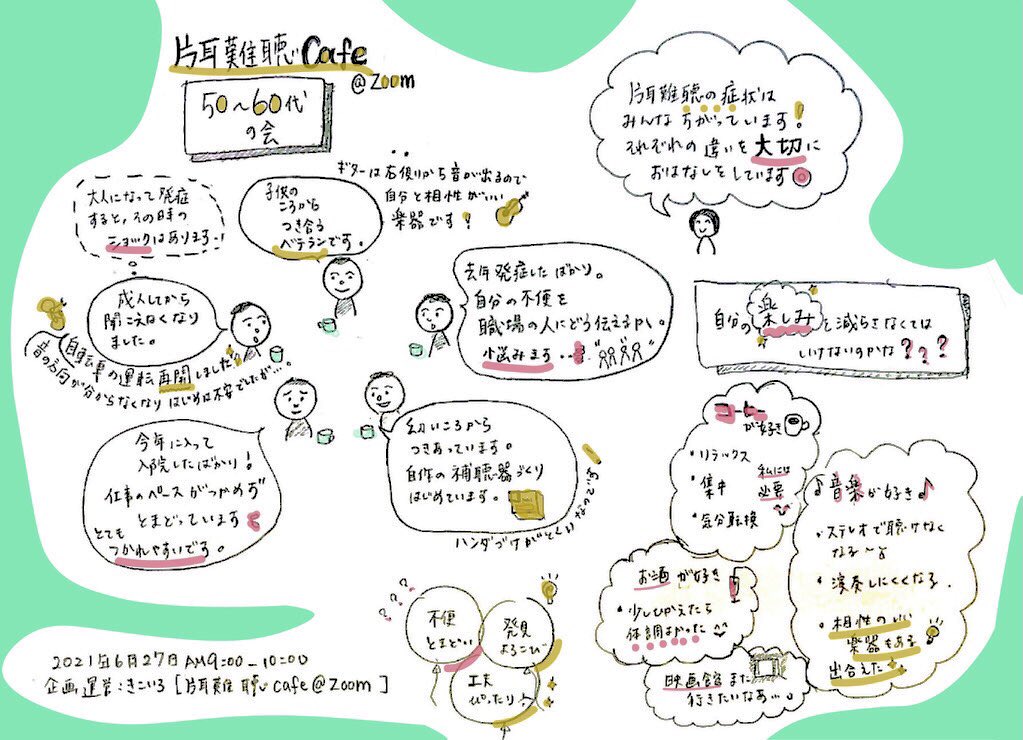 片耳難聴Cafe
@Zoom
50〜60代
の会
片耳難聴の症状は
みんなちがっています!
それぞれの違いを大切に
おはなしをしています
大人になって発症
すると、その時の
ショックはあります…!
子供の
ころから
つき合う
ベテランです。
ギターは右後りから音が出るので
自分と相性がいい
楽器です!
成人してから
聞こえなくなり
ました。
自転車の運転再開しました
音の方向が分からなくなりはじめは不安でしたが…。
去年発症したばかり。
自分の不便を
職場の人にどう伝えるか。
悩みます…
今年に入って
入院したばかり!
仕事のペースがつかめず
とまどっています
とても
つかれやすいです。
幼いころから
つきあっています。
自作の補聴器づくり
はじめています。
ハンダづけがとくいなのです
自分の楽しみを減らさなくては
いけないのかな???
コーヒー
が好き
・リラックス
・集中
・気分転換
私には
必要
お酒が好き
・少しひかえたら
体調よかった
映画館また
行きたいなあ…。
♪音楽が好き♪
・ステレオで聴けなく
なる〜
・演奏しにくくなる.
・相性のいい
楽器もある
出合えた
不便
とまどい
発見
よろこび
工夫
ぴったり
2021年6月27日AM9:00-10:00
企画運営:きこいろ[片耳難聴cafe@Zoom]